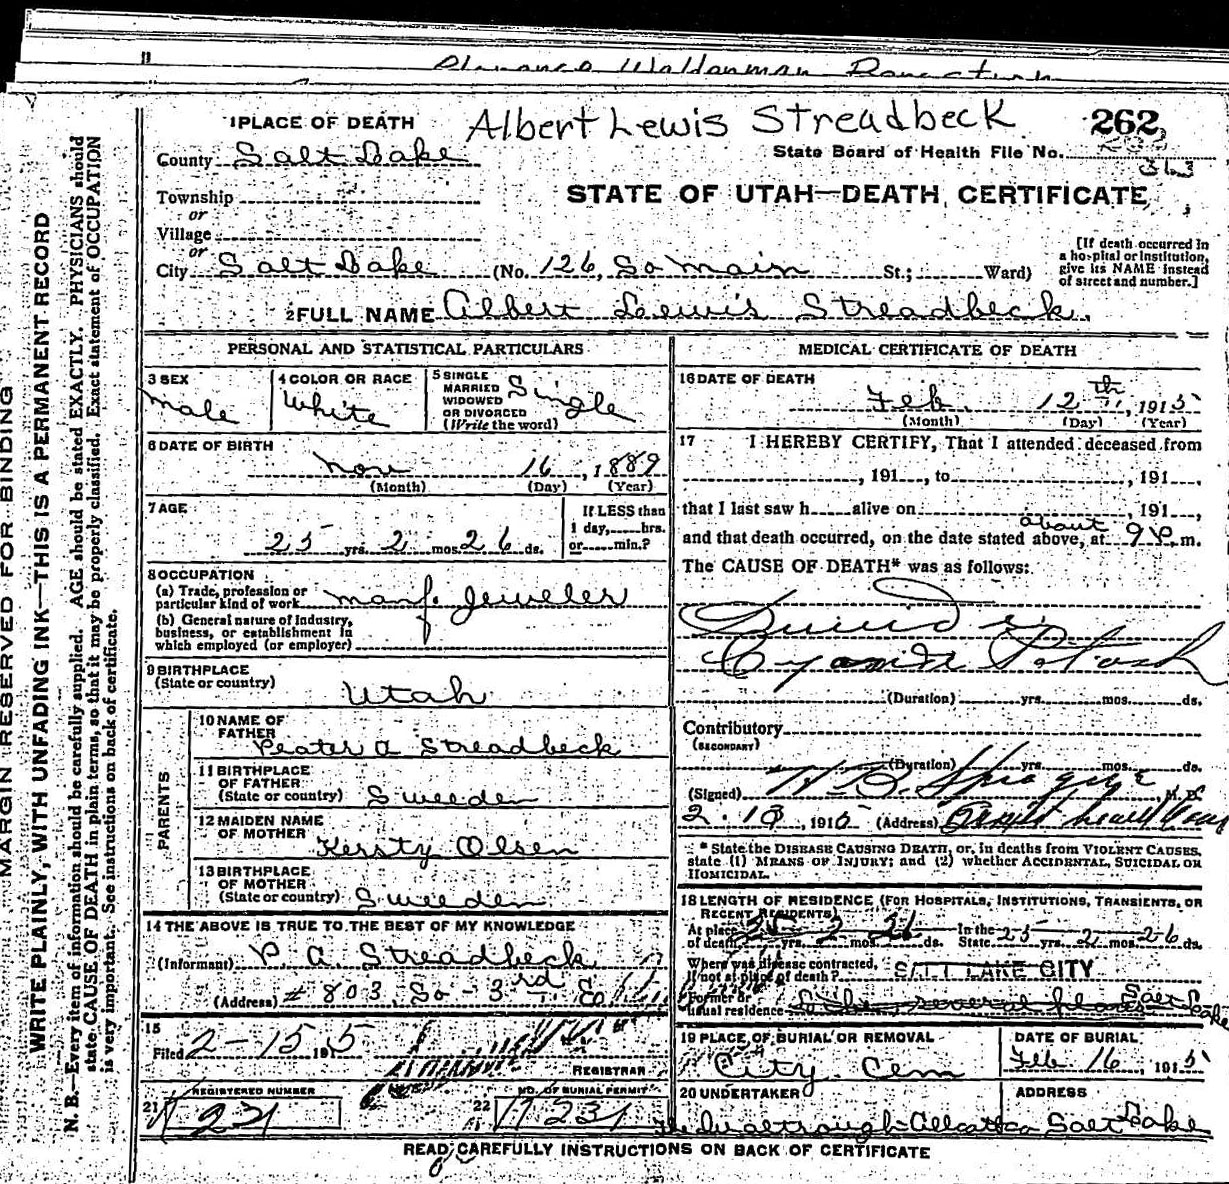 11
MARGIN RESERVED FOR BINDING
WRITE PLAINLY, WITH UNFADING INK—THIS IS A PERMANENT RECORD
N. B.—Every item of information should be carefully supplied. AGE should be stated EXACTLY. PHYSICIANS should
state CAUSE OF DEATH in plain terms, so that it may be properly classified. Exact statement of OCCUPATION
is very important. See instructions on back of certificate.
Albert Lewis Streadbeck
262
1 PLACE OF DEATH
State Board of Health File No.
County Salt Lake
363
Township
STATE OF UTAH—DEATH CERTIFICATE
or
Village
or
City Salt Lake (No. 126, So main St.; Ward)
[If death occurred in
a hospital or institution,
give its NAME instead
of street and number.]
2 FULL NAME Albert Lewis Streadbeck.
PERSONAL AND STATISTICAL PARTICULARS
3 SEX
male
4 COLOR OR RACE
White
5 SINGLE
MARRIED
WIDOWED
OR DIVORCED
(Write the word)
Single
6 DATE OF BIRTH
Nov 16, 1889
(Month) (Day) (Year)
7 AGE
25 yrs. 2 mos. 26 ds.
If LESS than
1 day, hrs.
or min.?
8 OCCUPATION
(a) Trade, profession or
particular kind of work manf. Jeweler
(b) General nature of Industry,
business, or establishment in
which employed (or employer)
9 BIRTHPLACE
(State or country)
Utah
PARENTS
10 NAME OF
FATHER
Peater A Streadbeck
11 BIRTHPLACE
OF FATHER
(State or country) Sweeden
12 MAIDEN NAME
OF MOTHER
Kersty Olsen
13 BIRTHPLACE
OF MOTHER
(State or country) Sweeden
14 THE ABOVE IS TRUE TO THE BEST OF MY KNOWLEDGE
(Informant) P. A. Streadbeck
(Address) # 803 So - 3rd E
15
Filed 2-15 1915
REGISTRAR
REGISTERED NUMBER
21 231
NO. OF BURIAL PERMIT
22 231
MEDICAL CERTIFICATE OF DEATH
16 DATE OF DEATH
Feb. 12th, 1915
(Month) (Day) (Year)
17 I HEREBY CERTIFY, That I attended deceased from
, 191, to , 191,
that I last saw h alive on , 191,
about
and that death occurred, on the date stated above, at 9 P. m.
The CAUSE OF DEATH* was as follows:
Suicide
Cyanide Potash
(Duration) yrs. mos. ds.
Contributory
(SECONDARY)
(Duration) yrs. mos. ds.
(Signed) H B. Sprague, M. D.
2.13, 1915 (Address)
* State the DISEASE CAUSING DEATH, or, in deaths from VIOLENT CAUSES,
state (1) MEANS OF INJURY; and (2) whether ACCIDENTAL, SUICIDAL OR
HOMICIDAL.
18 LENGTH OF RESIDENCE (FOR HOSPITALS, INSTITUTIONS, TRANSIENTS, OR
RECENT RESIDENTS)
At place
of death 25 yrs. 2 mos. 26 ds. In the
State 25 yrs. 2 mos. 26 ds.
Where was disease contracted,
If not at place of death? SALT LAKE CITY
Former or
usual residence several Salt Lake
19 PLACE OF BURIAL OR REMOVAL
City Cem
DATE OF BURIAL
Feb 16, 1915
20 UNDERTAKER
ADDRESS
Salt Lake
READ CAREFULLY INSTRUCTIONS ON BACK OF CERTIFICATE